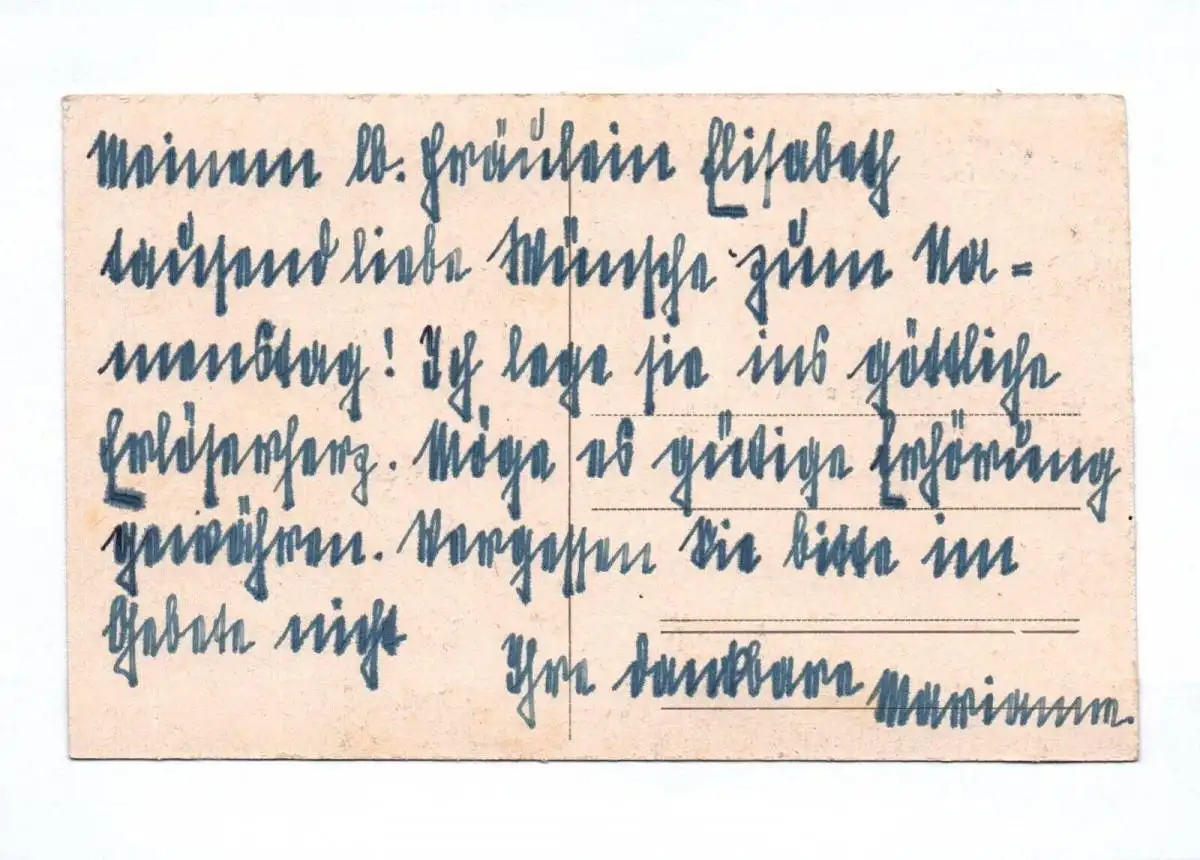 Meinem lb. Fräulein Elisabeth
tausend liebe Wünsche zum Na=
menstag! Ich lege sie ins göttliche
Erlöserherz. Möge es gütige Erhörung
gewähren. Vergessen Sie bitte im
Gebete nicht
Ihre dankbare Marianne.